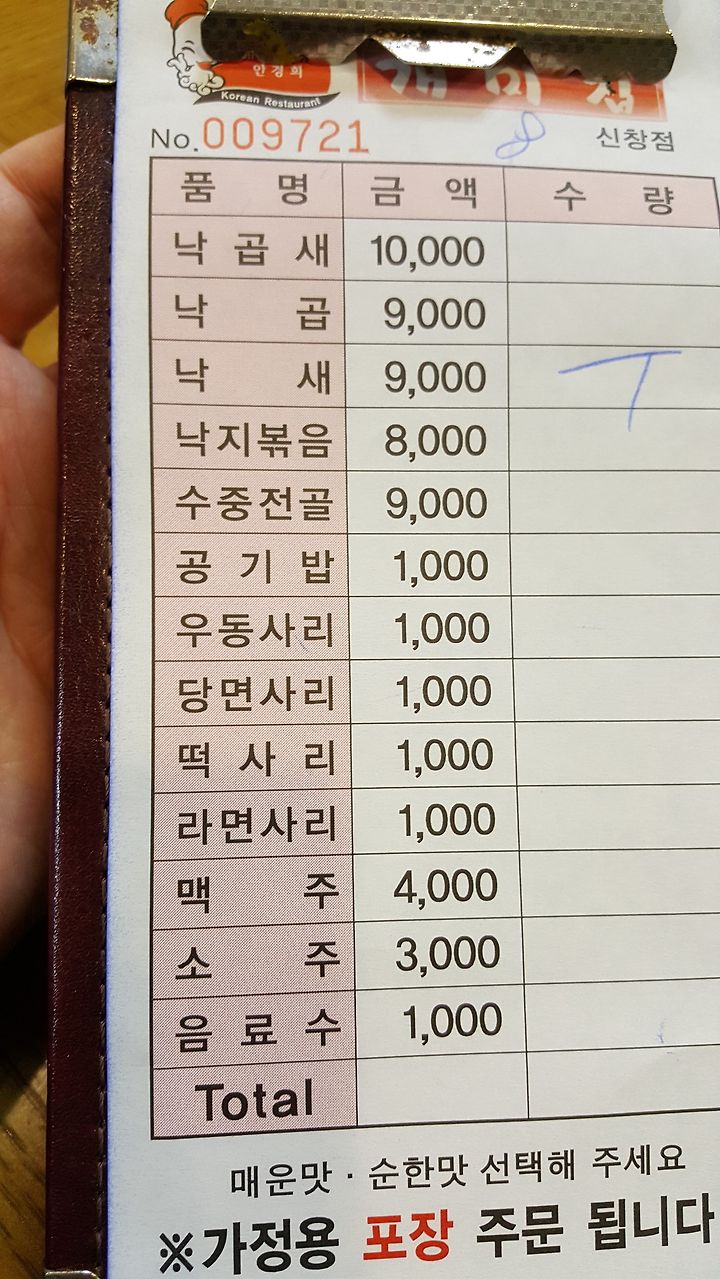 인경희
개미집
Korean Restaurant
No. 009721 8 신창점
품명 금액 수량
낙곱새 10,000
낙곱 9,000
낙새 9,000
낙지볶음 8,000
수중전골 9,000
공기밥 1,000
우동사리 1,000
당면사리 1,000
떡사리 1,000
라면사리 1,000
맥주 4,000
소주 3,000
음료수 1,000
Total
매운맛 · 순한맛 선택해 주세요
※가정용 포장 주문 됩니다